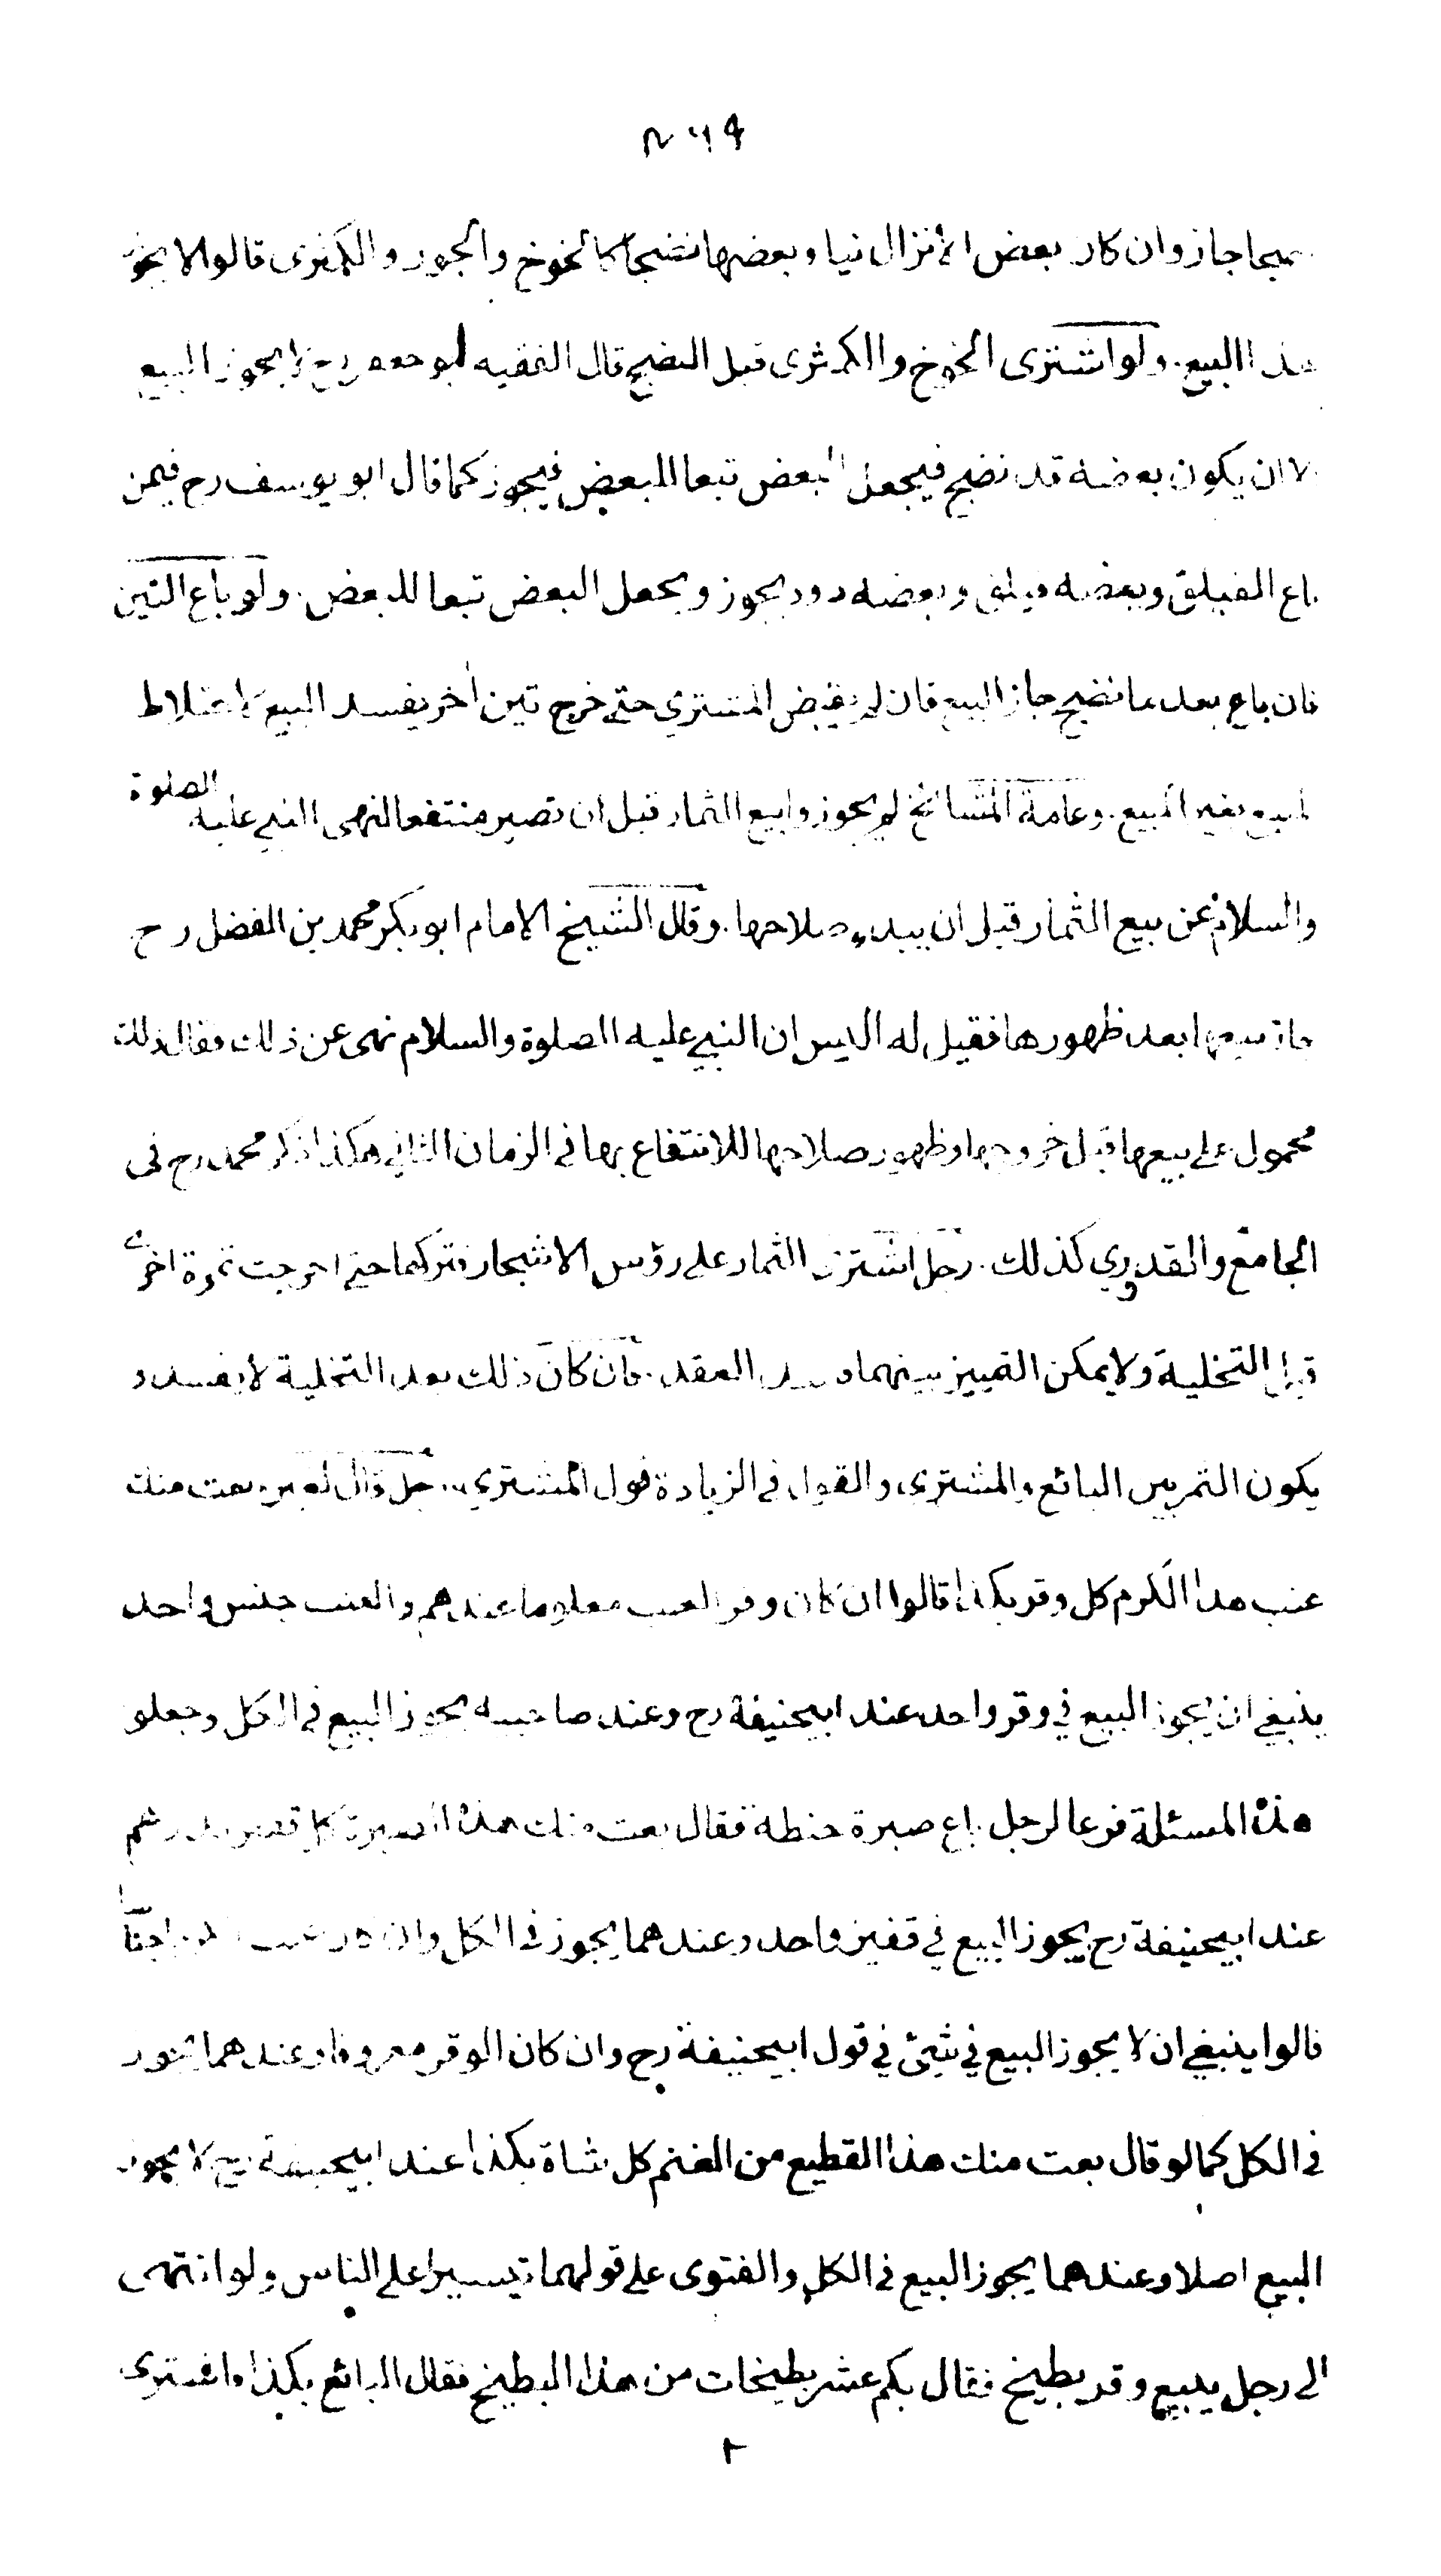 ٢٦٩
جاز وان كان بعض الانزال نيا وبعضها نضيجا كالخوخ والجوز والكمثرى قالوا لا يجوز
هذا البيع. ولو اشترى الخوخ والكمثرى قبل النضج قال الفقيه ابو جعفر رح لا يجوز البيع
الا ان يكون بعضه قد نضج فيجعل البعض تبعا للبعض فيجوز كما قال ابو يوسف رح فيمن
باع الفيلق وبعضه فيلق وبعضه دود يجوز ويجعل البعض تبعا للبعض. ولو باع التين
فان باع بعد ما نضج جاز البيع فان لم يقبض المشتري حتى خرج تين اخر يفسد البيع لاختلاط
المبيع بغير المبيع. وعامة المشائخ لم يجوزوا بيع الثمار قبل ان تصير منتفعا لنهى النبي عليه الصلوة
والسلام عن بيع الثمار قبل ان يبدو صلاحها. وقال الشيخ الامام ابو بكر محمد بن الفضل رح
جاز بيعها بعد ظهورها فقيل له اليس ان النبي عليه الصلوة والسلام نهى عن ذلك فقال ذلك
محمول على بيعها قبل خروجها وظهور صلاحها للانتفاع بها في الزمان الثاني هكذا ذكر محمد رح في
الجامع والقدوري كذلك. رجل اشترى الثمار على رؤس الاشجار فتركها حتى اخرجت ثمرة اخرى
قبل التخلية ولا يمكن التمييز بينهما فسد العقد. فان كان ذلك بعد التخلية لا يفسد و
يكون الثمر بين البائع والمشتري والقول في الزيادة قول المشتري. رجل قال لغيره بعت منك
عنب هذا الكرم كل وقر بكذا قالوا ان كان وقر العنب معلوما عندهم والعنب جنس واحد
ينبغي ان يجوز البيع في وقر واحد عند ابيحنيفة رح وعند صاحبيه يجوز البيع في الكل وجعلو
هذه المسئلة فرعا لرجل باع صبرة حنطة فقال بعت منك هذه الصبرة كل قفيز بدرهم
عند ابيحنيفة رح يجوز البيع في قفيز واحد وعندهما يجوز في الكل وان كان عنب الكرم اجناسا
قالوا ينبغي ان لا يجوز البيع في شئ في قول ابيحنيفة رح وان كان الوقر معروفا وعندهما يجوز
في الكل كما لو قال بعت منك هذا القطيع من الغنم كل شاة بكذا عند ابيحنيفة رح لا يجوز
البيع اصلا وعندهما يجوز البيع في الكل والفتوى على قولهما تيسيرا على الناس ولو انتهى
الى رجل يبيع وقر بطيخ فقال بكم عشر بطيخات من هذا البطيخ فقال البائع بكذا واشترى
٢